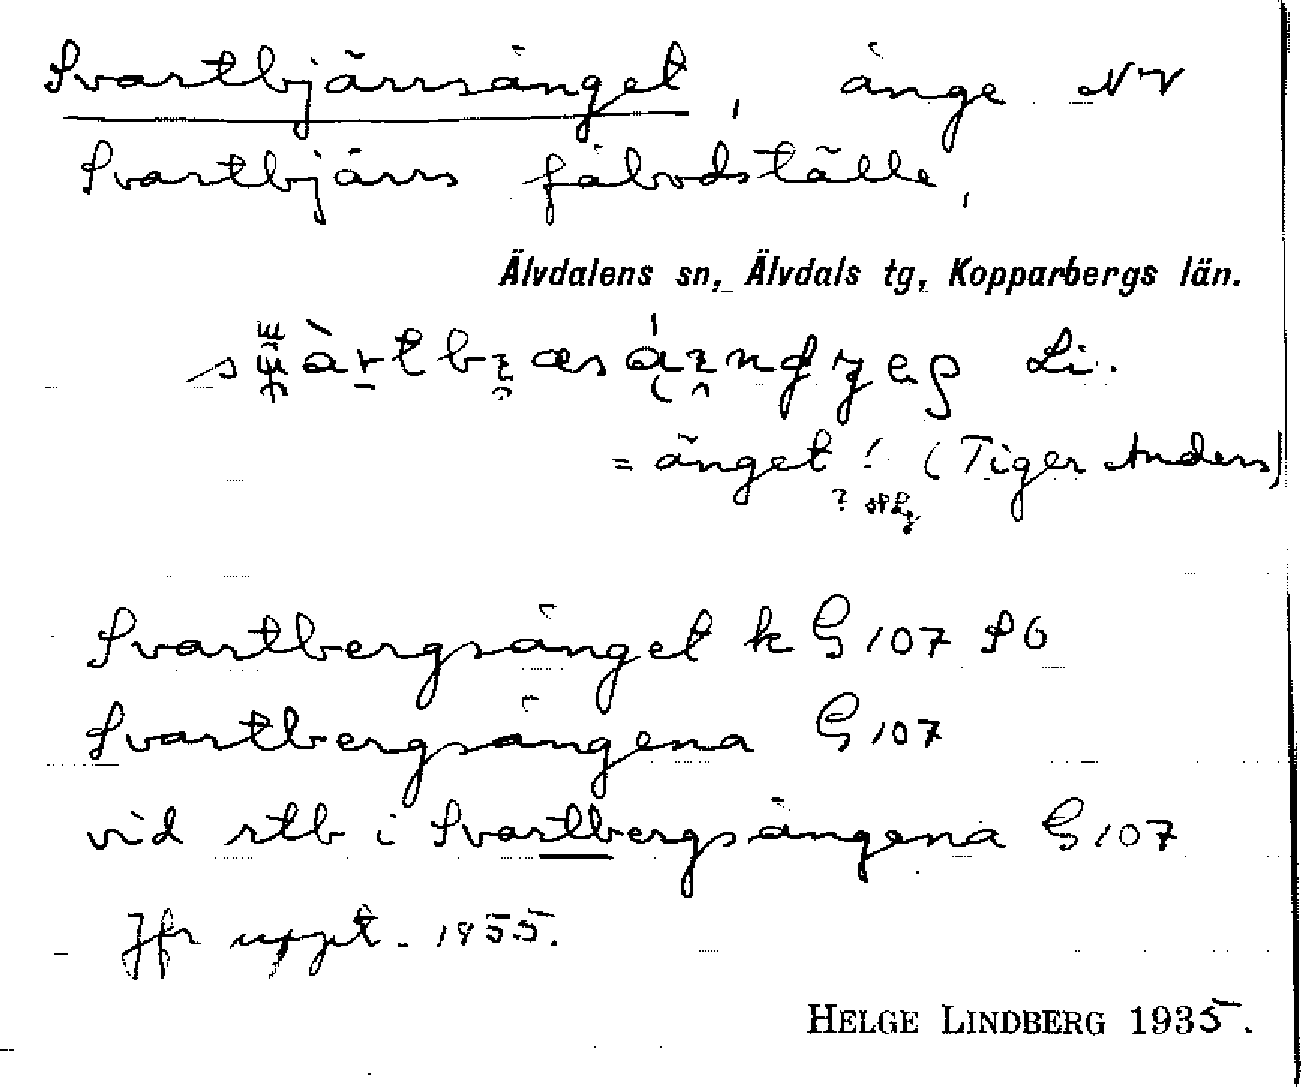 Svartbjärnsänget, änge NV
Svartbjärns fäbodställe,
Älvdalens sn, Älvdals tg, Kopparbergs län.
Li.
= änget! (Tiger Anders)
?
Svartbergsänget k G 107 S6
Svartbergsängena G 107
vid rtb i Svartbergsängena G 107
Jfr uppt. 1955.
HELGE LINDBERG 1935.